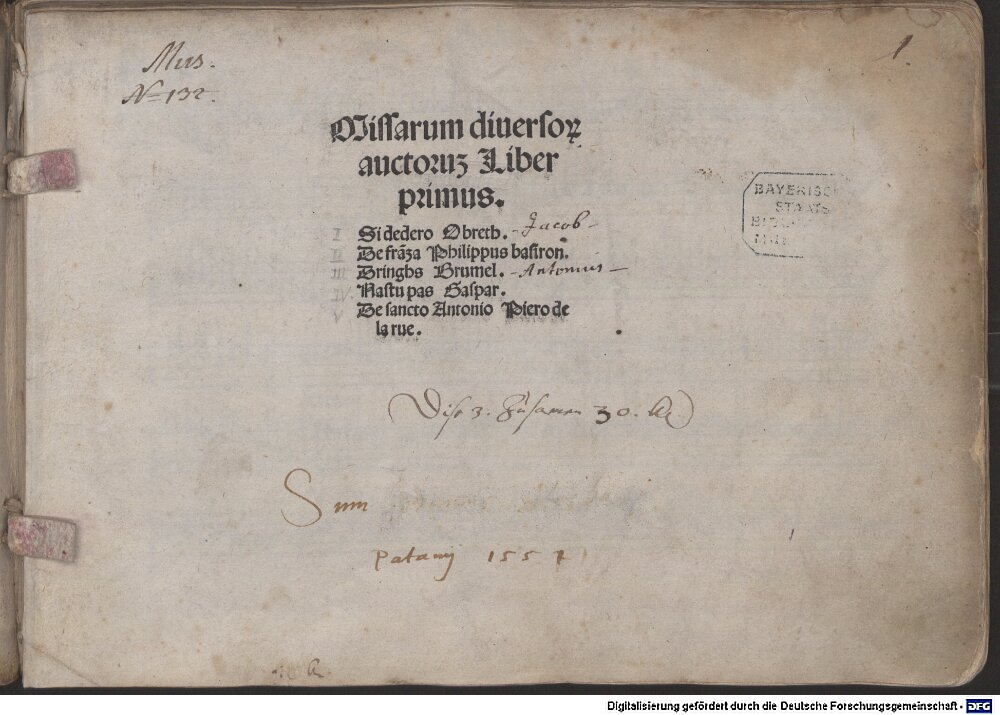 Mus.
Nº 132.
1
Missarum diuersoꝝ
auctoruꝫ Liber
primus.
I Si dedero Obreth. - Jacob -
II De frãza Philippus basiron.
III Dringhs Brumel. - Antonius -
IV. Nastu pas Gaspar.
V De sancto Antonio Piero de
la rue.
BAYERISCHE
STAATS
MUE
3. Zusamen 30.
Sum
Patavij 1557
Digitalisierung gefördert durch die Deutsche Forschungsgemeinschaft - DFG